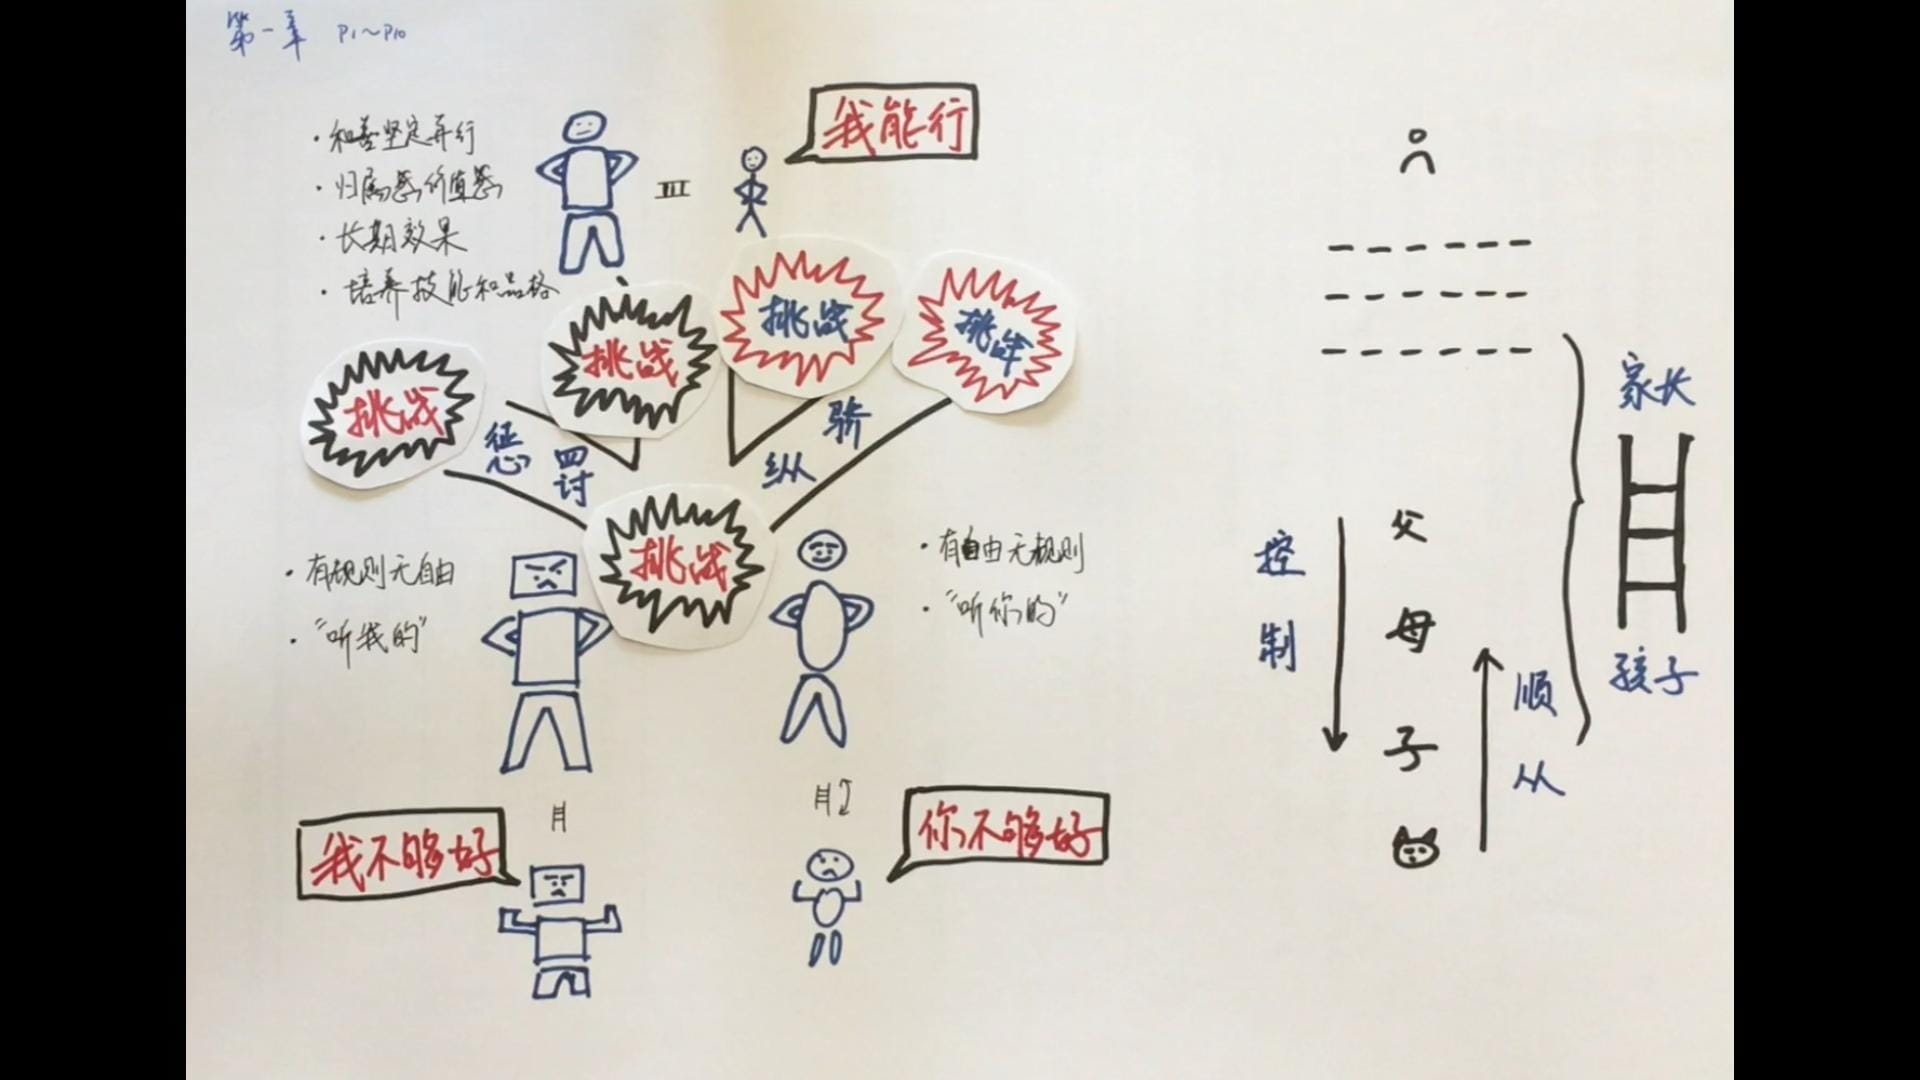 第一章 P1~P10
我能行
·和善坚定并行
·归属感价值感
·长期效果
·培养技能和品格
挑战
挑战
挑战
挑战
惩罚
骄纵
挑战
·有规则无自由
·"听我的"
·有自由无规则
·"听你的"
我不够好
你不够好
家长
孩子
控制
父
母
子
顺从